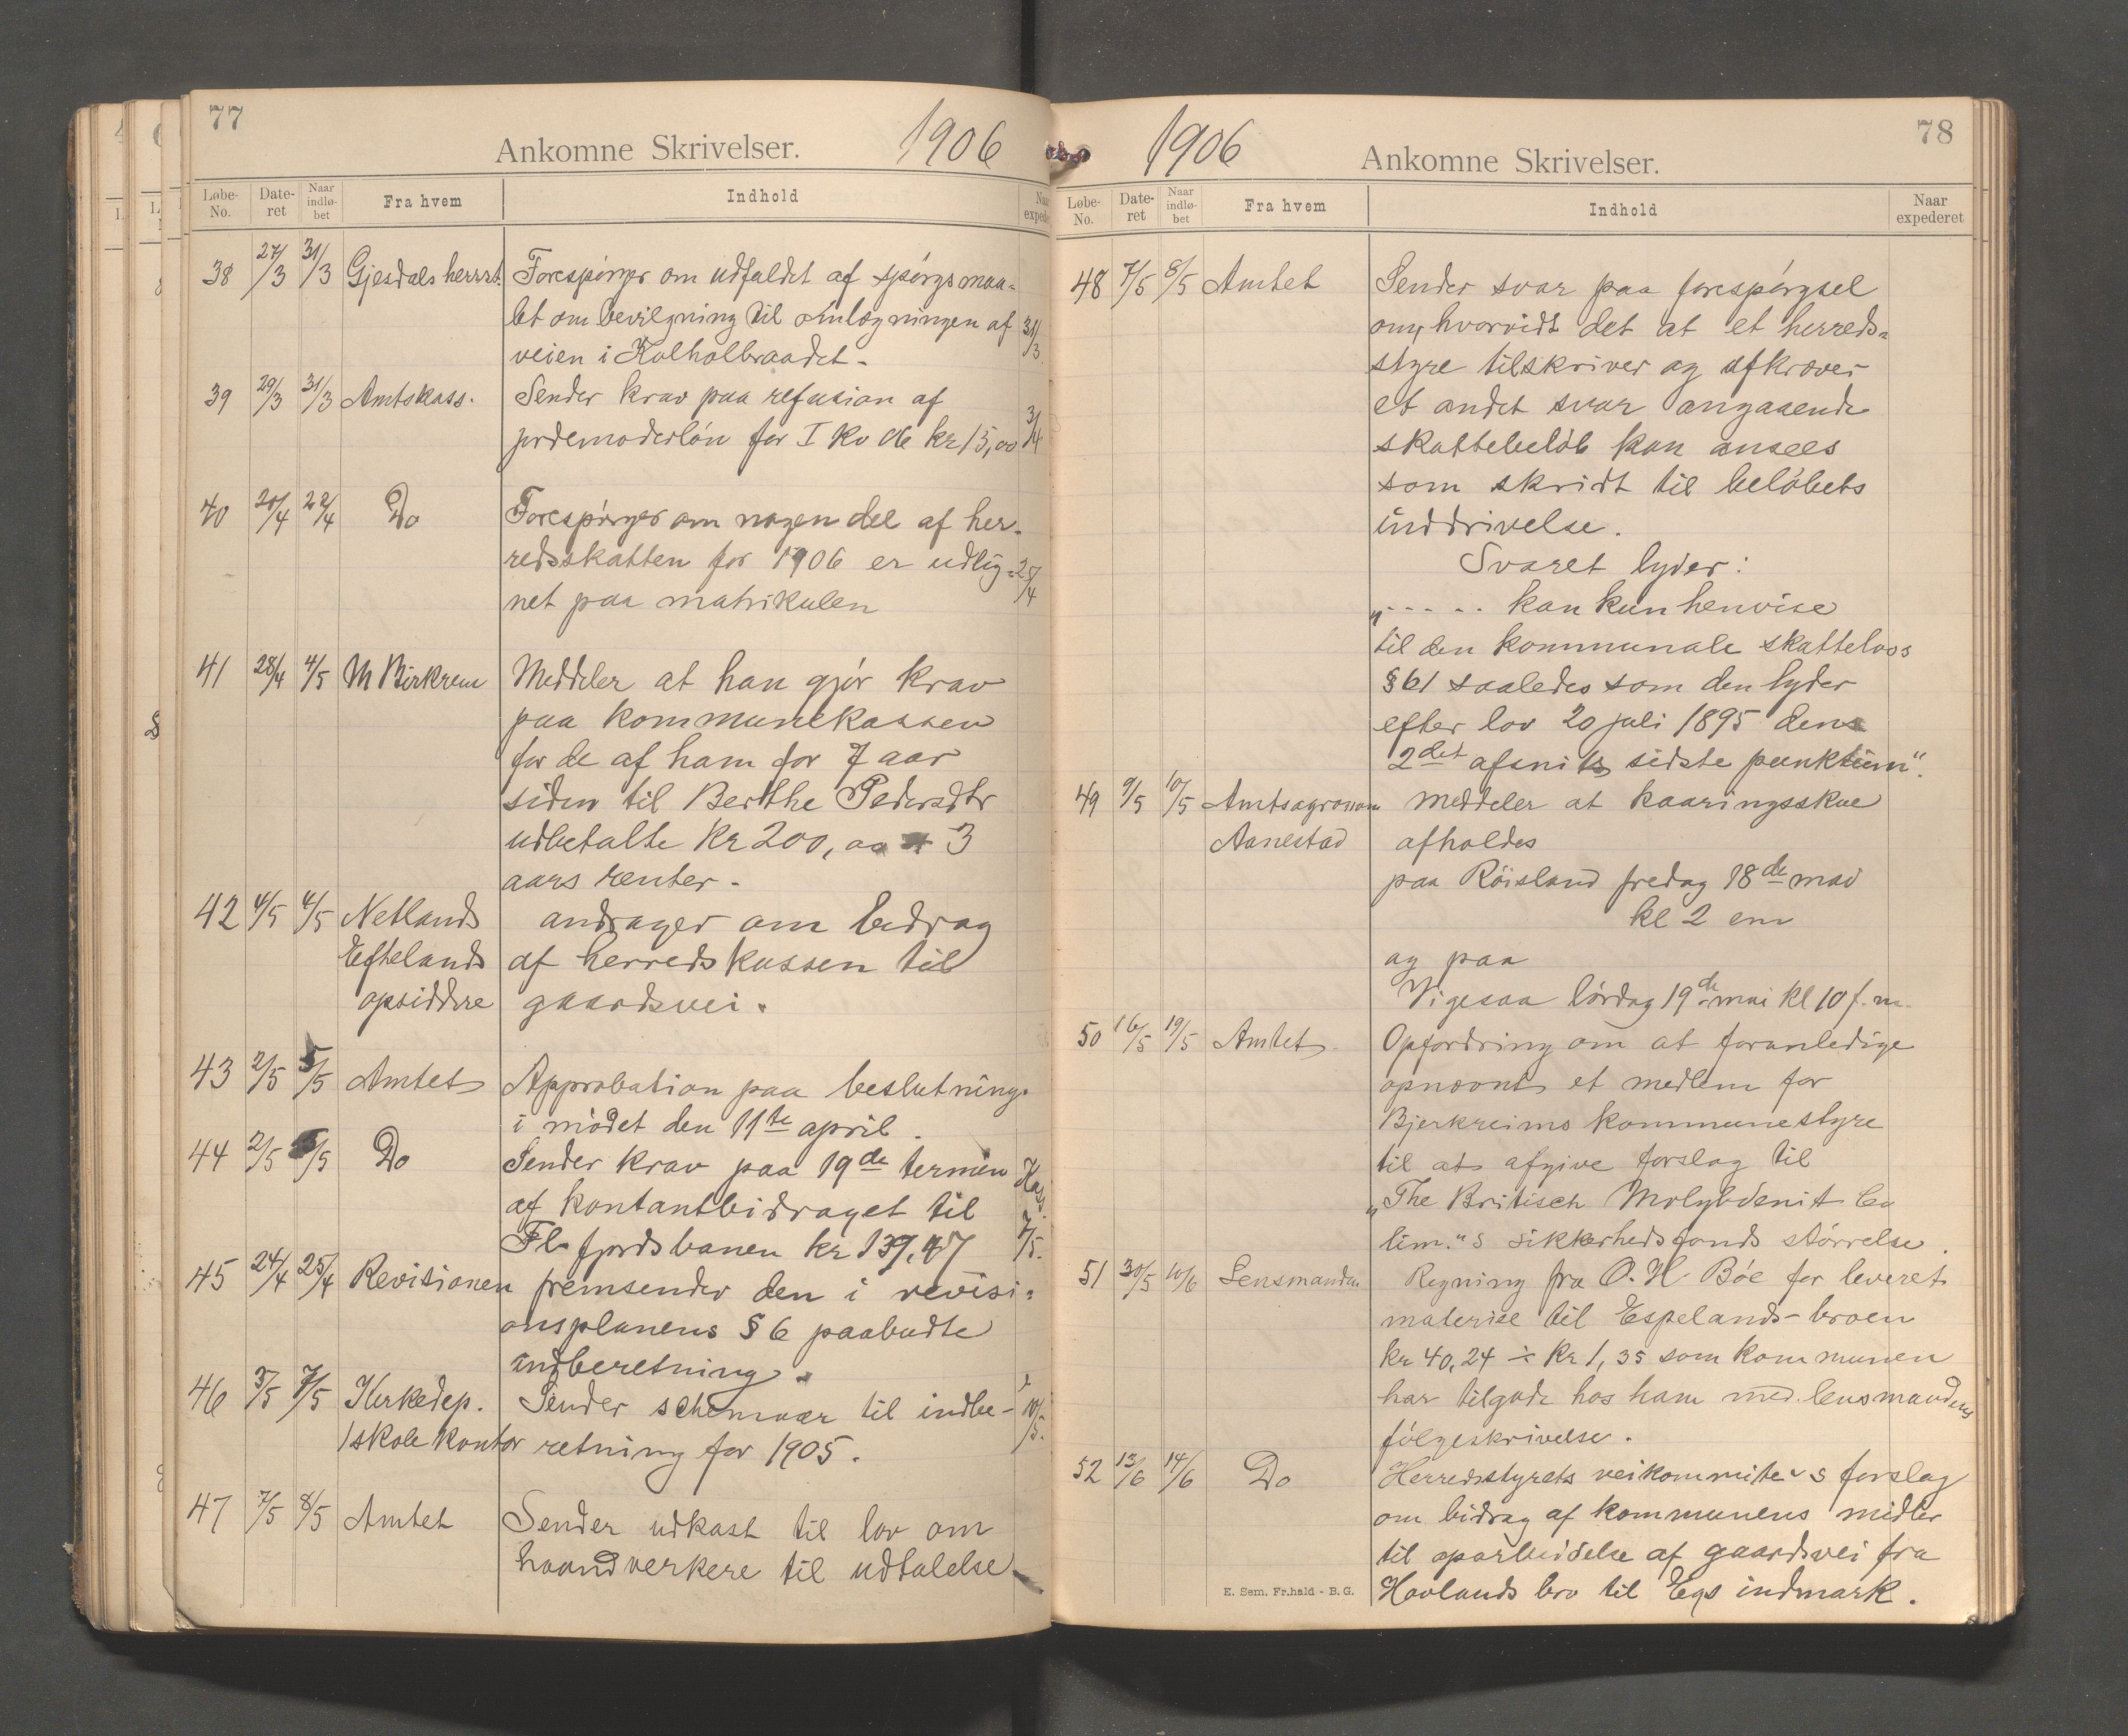 77
Ankomne Skrivelser. 1906
Løbe-No. Date-ret Naar indlø-bet Fra hvem Indhold Naar expede
38 27/3 31/3 Gjesdals herrst. Forespørger om udfaldet af spørgsmaa-
let om bevilgning til omlægningen af 31/3
veien i Kolholbraadet.
39 29/3 31/3 Amtskass. Sender krav paa refusion af
jordemoderløn for I Kv 06 kr 15,00 3/4
40 20/4 22/4 Do Forespørger om nogen del af her-
redsskatten for 1906 er udlig-
net paa matrikulen
41 28/4 4/5 M Birkrem Meddeler at han gjør krav
paa kommunekassen
for de af ham for 7 aar
siden til Berthe Pedersdtr
udbetalte Kr 200,00 + 3
aars renter.
42 4/5 4/5 Netlands andrager om bidrag
Eftelands af herredskassen til
opsiddere gaardsvei.
43 2/5 5/5 Amtet Approbation paa beslutning
i mødet den 11te april.
44 2/5 5/5 Do Sender krav paa 19de termin Kass.
af kontantbidraget til
Fl fjordsbanen kr 139,47 7/5.
45 24/4 25/4 Revisionen fremsender den i revisi-
onsplanens § 6 paabudte
indberetning.
46 3/5 7/5 Kirkedep. Sender schemaer til indbe- 10/5.
/skolekontor retning for 1905.
47 7/5 8/5 Amtet Sender udkast til lov om
haandverkere til udtalelse
78
1906 Ankomne Skrivelser.
Løbe-No. Date-ret Naar indlø-bet Fra hvem Indhold Naar expederet
48 7/5 8/5 Amtet Sender svar paa forespørgsel
om, hvorvidt det at et herreds-
styre tilskriver og afkræver
et andet svar angaaende
skattebeløb kan ansees
som skridt til beløbets
inddrivelse.
Svaret lyder:
„ . . . . . kan kun henvise
til den kommunale skattelovs
§ 61 saaledes som den lyder
efter lov 20 juli 1895 dens
2det afsnits sidste punktum“.
49 9/5 10/5 Amtsagronom Meddeler at kaaringsskue
Aanestad afholdes
paa Röisland fredag 18de mai
kl 2 em
og paa
Vigesaa lördag 19de mai kl 10 f.m.
50 16/5 19/5 Amtet Opfordring om at foranledige
opnævnt et medlem for
Bjerkreims kommunestyre
til at afgive forslag til
„The Britisch Molybdenit Co
lim.“s sikkerhedsfonds størrelse.
51 30/5 10/6 Lensmanden Regning fra O. H. Bøe for leveret
materiel til Espelands-broen
kr 40,24 ÷ kr 1,35 som kommunen
har tilgode hos ham med lensmandens
følgeskrivelse.
52 13/6 14/6 Do Herredsstyrets veikommite's forslag
om bidrag af kommunens midler
til oparbeidelse af gaardsvei fra
Hovlands bro til Egs indmark.
E. Sem. Fr.hald - B.G.